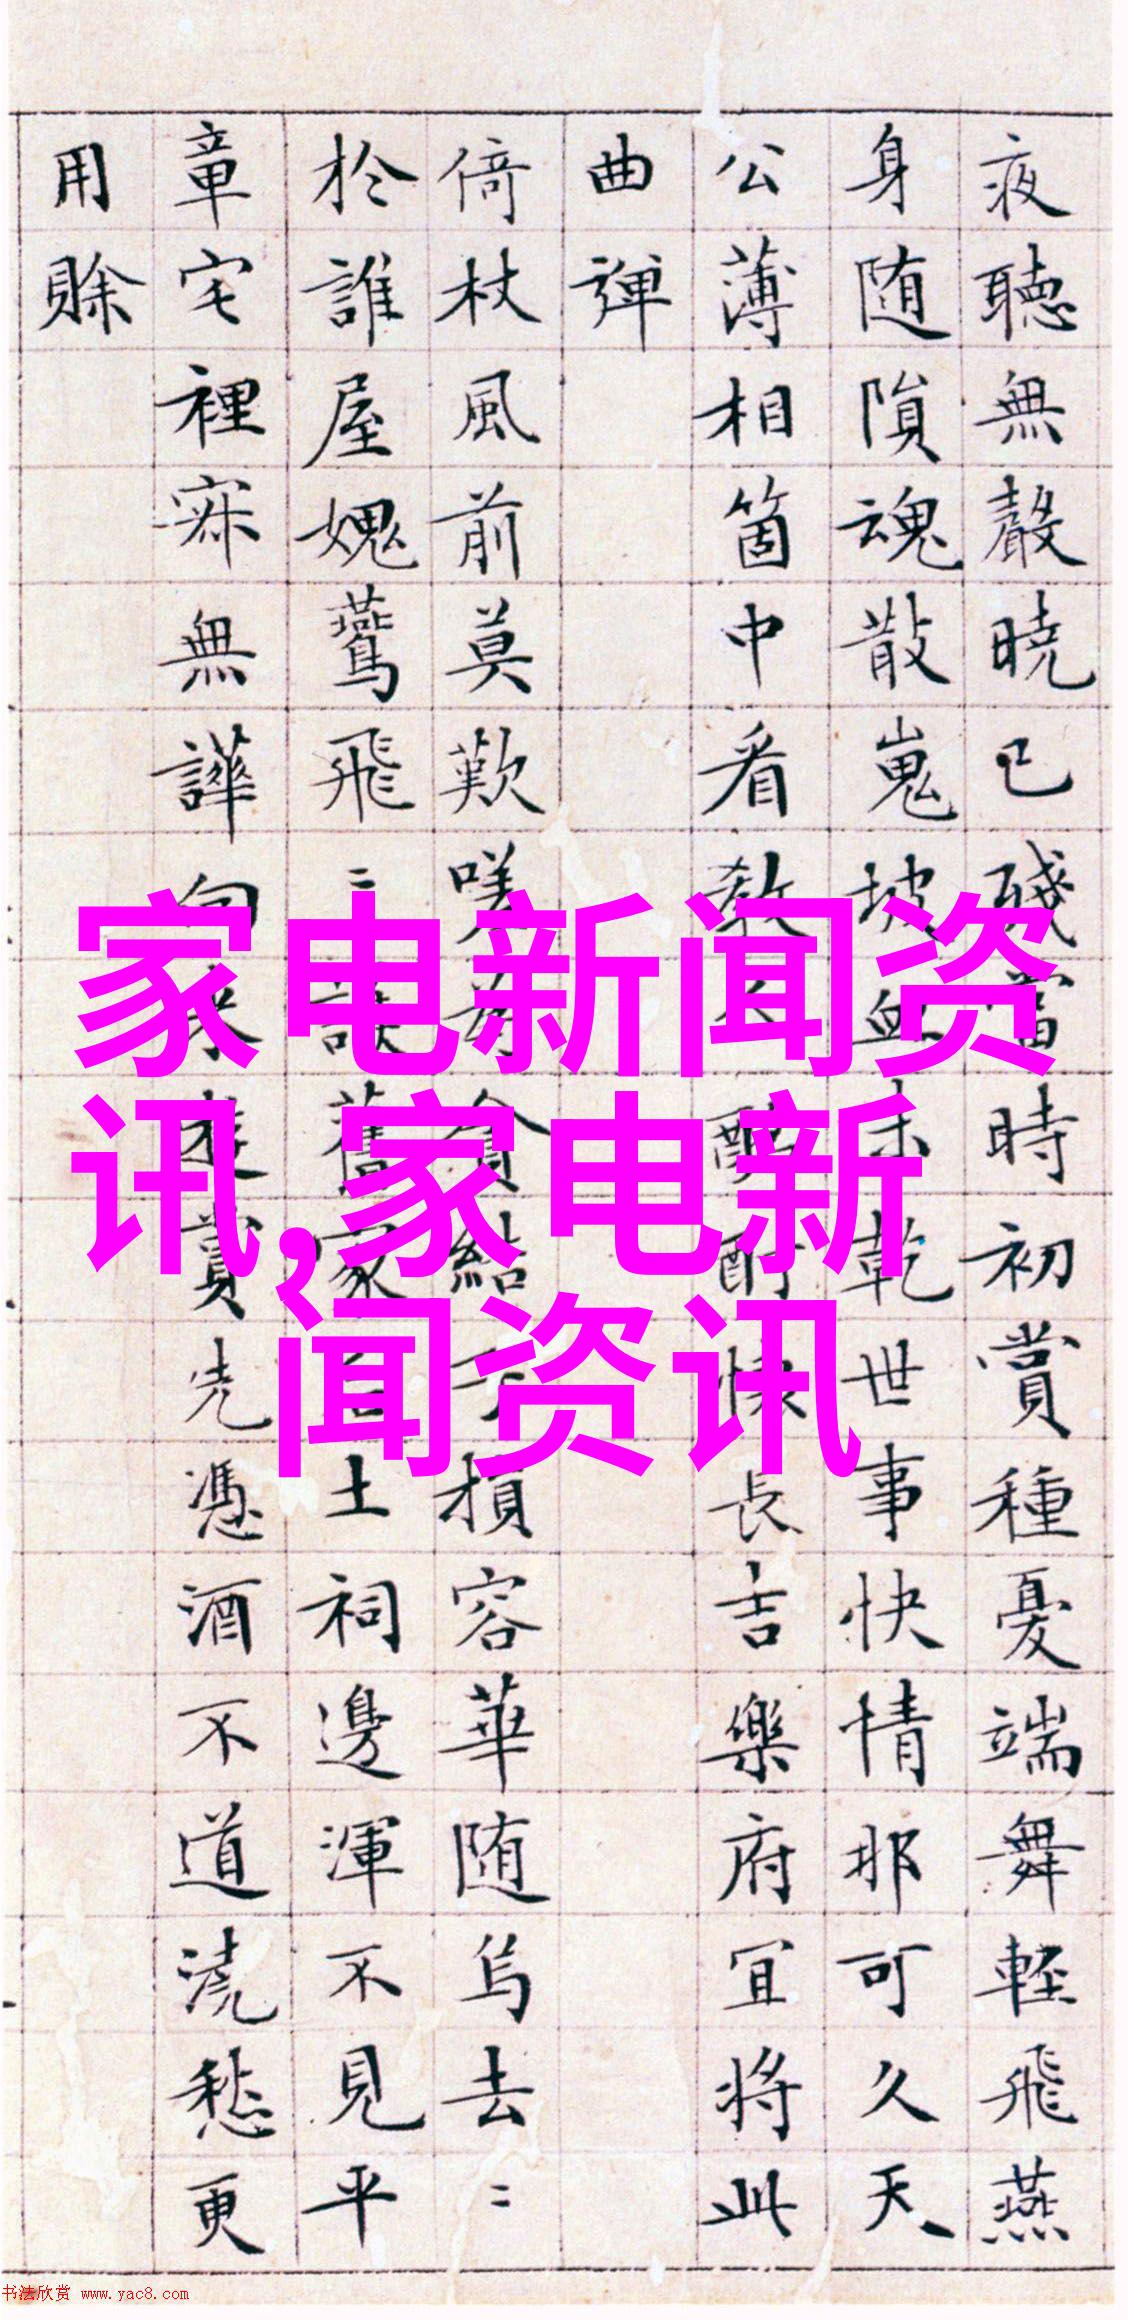 夜聽無聲曉已殘當時初賞種憂端舞輕飛燕
身隨隕魂散嵬坡血未乾世事快情那可久天
公薄相箇中看教人酩酊懷長吉樂府宜將此
曲彈
倚杖風前莫歎嘆為貧結子損容華随烏去〻
於誰屋媿鷰飛〻認舊家后土祠邊渾不見平
章宅裡寐無譁向來遊賞先憑酒不道澆愁更
用賖
家电新闻资
讯,家电新
闻资讯
书法欣赏 www.yac8.com